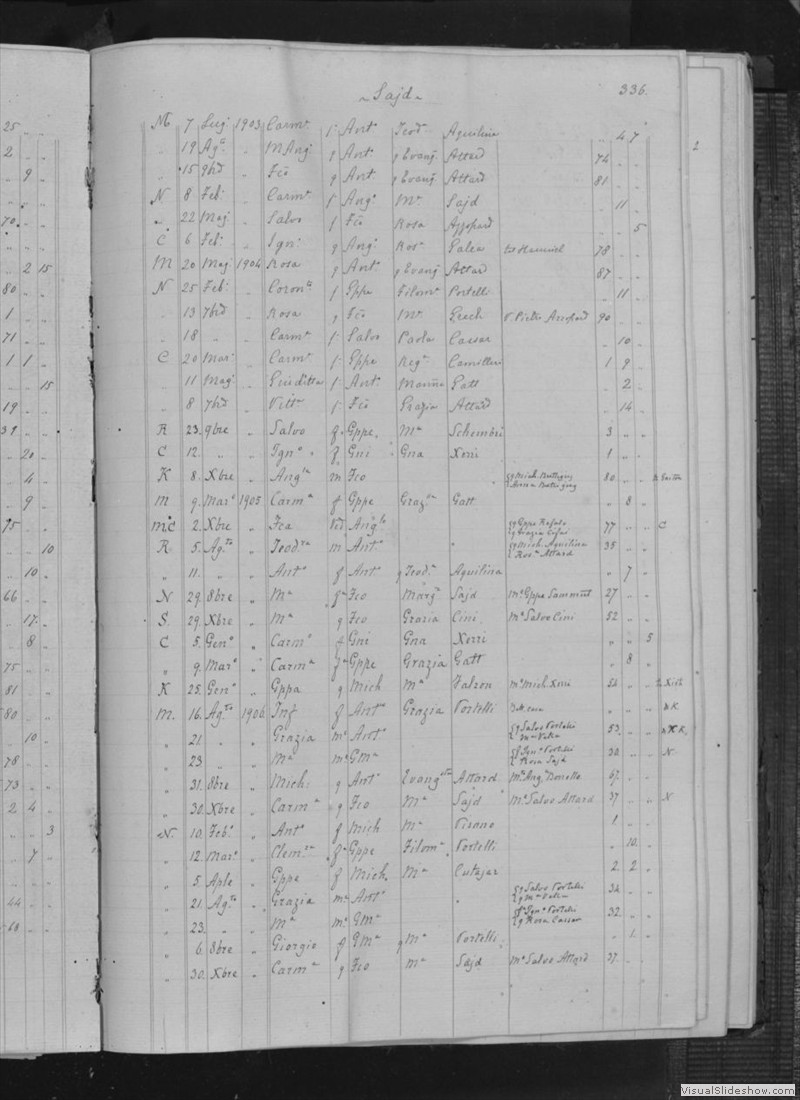 25
2
9
70
2 15
80
1
71
1 1
15
19
31
20
4
9
75
10
10
66
17
8
75
81
80
10
78
73
2 4
3
7
44
~ Sajd ~ 336.
M 7 Lug 1903 Carmª f Antº Teodª Aquilina 4 7
" 19 Agº " M Angª g Antº g Evang Attard 74 " "
" 15 9bre " Fco g Antº g Evang Attard 81 " "
N 8 Feb. " Carmª f Angº Mª Sajd " 11 "
" 22 Mag " Salvo f Fco Rosa Azzopard " " 5
C 6 Feb. " Ignª g Angº Rosª Galea 78 " "
M 20 Mag 1904 Rosa g Antº g Evang Attar 87 " "
N 25 Feb. " Coronª f Gppe Filomª Portelli " 11 "
" 13 7bre " Rosa g Fco Mª Zerch V. Pietro Azzopard 90 " "
" 18 " " Carmª f Salvo Paola Cassar " 10 "
C 20 Marº " Carmª f Gppe Regª Camilleri 1 9 "
" 11 Mag " Giuditta f Antº Marina Gatt " 2 "
" 8 7bre " Vittª f Fco Grazia Attard " 14 "
R 23. 9bre " Salvo f Gppe Mª Schembri 3 " "
C 12. " " Ignº f Gni Gna Xerri 1 " "
K 8. Xbre " Anglª m Fco g Mich. Buttigieg 80 " "
M 9. Marº 1905 Carmª f Gppe Grazª Gatt " 8 "
2. Xbre " Fca Ved Anglº g Grazia 77 " " C
R 5. Agto " Teodra m Antº " g Mich Aquilina Rosª Attard 35 " "
" 11. " " Antº f Antº g Teodª Aquilina " 7 "
N 29. 8bre " Mª f Fco Margª Sajd Mº Gppe Sammut 27 " "
S. 29. Xbre " Mª g Fco Grazia Cini Mº Salvo Cini 52 " "
C 5. Genº " Carmº f Gni Gna Xerri " " 5
" 9. Marº " Carmª f Gppe Grazia Gatt " 8 "
K 25. Genº " Gppa g Mich Mª Falzon Mº Mich. Xerri 54 " "
M. 16. Agto 1906 Inf f Antº Grazia Portelli " " " N K
" 21. " " Grazia m Antº g Salvo Portelli Mª Vella 53. " "
" 23 " " Mª m GMª g Genº Portelli Rosa Sajd 30. " " N
" 31. 8bre " Mich. g Antº Evangta Attard Mº Angº 67. " "
" 30. Xbre " Carmª g Fco Mª Sajd Mº Salvo Attard 37 " " N
N. 10. Febº " Antº f Mich Mª Pisano 1 " "
" 12. Marº " Clemª f Gppe Filomª Portelli " 10. "
" 5. Aple " Gppe f Mich Mª Cutajar 2. 2 "
" 21. Agto " Grazia m Antº " g Salvo Portelli g Mª Vella 34. " "
" 23. " " Mª m GMª g Genº Portelli g Rosa Cassar 32. " "
" 6. 8bre " Giorgio f GMª g Mª Portelli " 1. "
" 30. Xbre " Carmª g Fco Mª Sajd Mº Salvo Attard 37. " "
VisualSlideshow.com